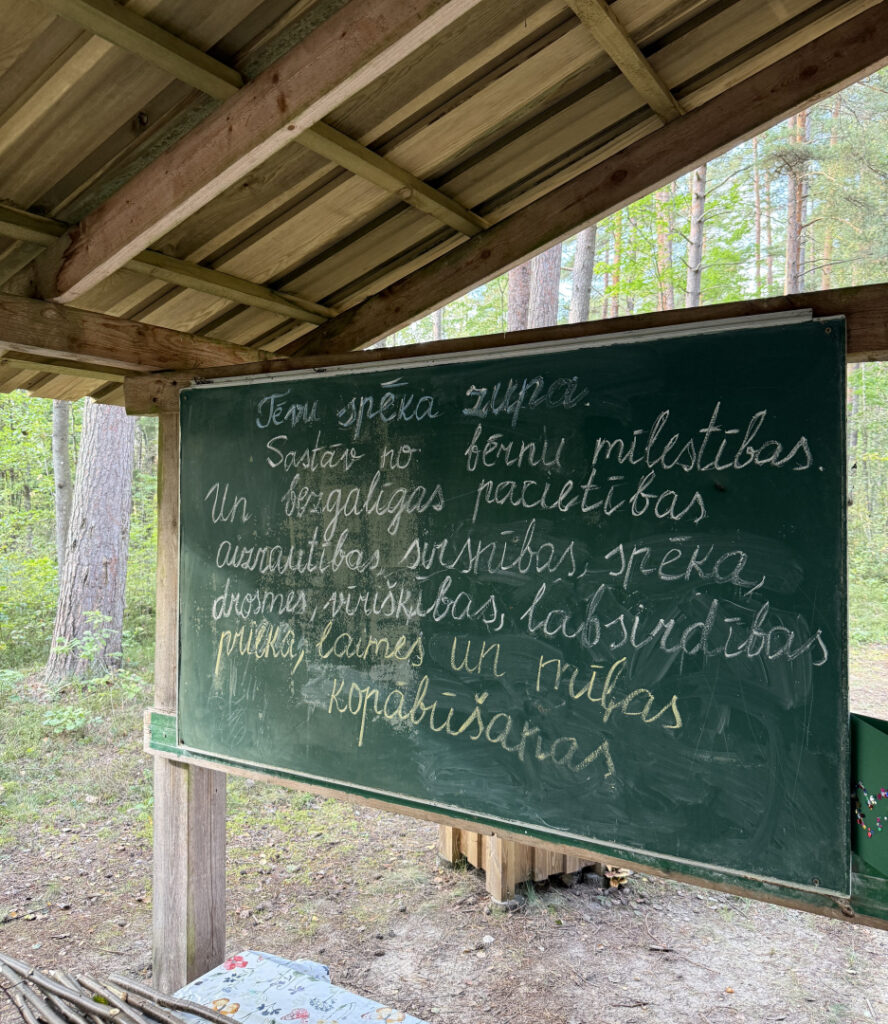 Tēvu spēka zupa.
Sastāv no bērnu mīlestības.
Un bezgalīgas pacietības
aizrautības, sirsnības, spēka,
drosmes, vīrišķības, labsirdības
prieka, laimes un mīļas
kopabūšanas